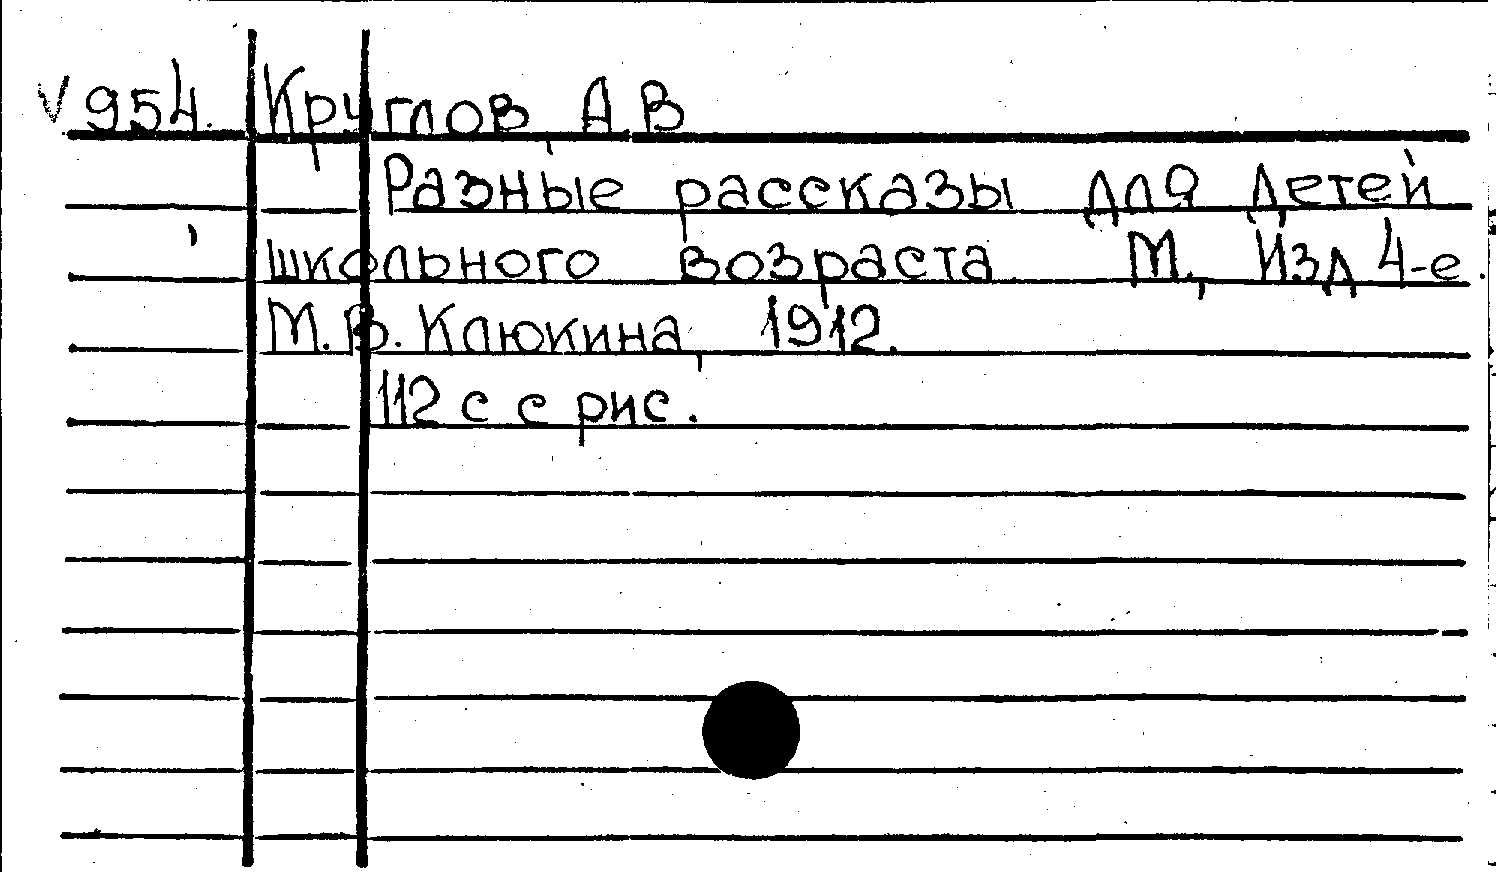 V 954. Круглов, А В
Разные рассказы для детей
школьного возраста М., Изд 4-е.
М.В. Клюкина, 1912.
112 с с рис.